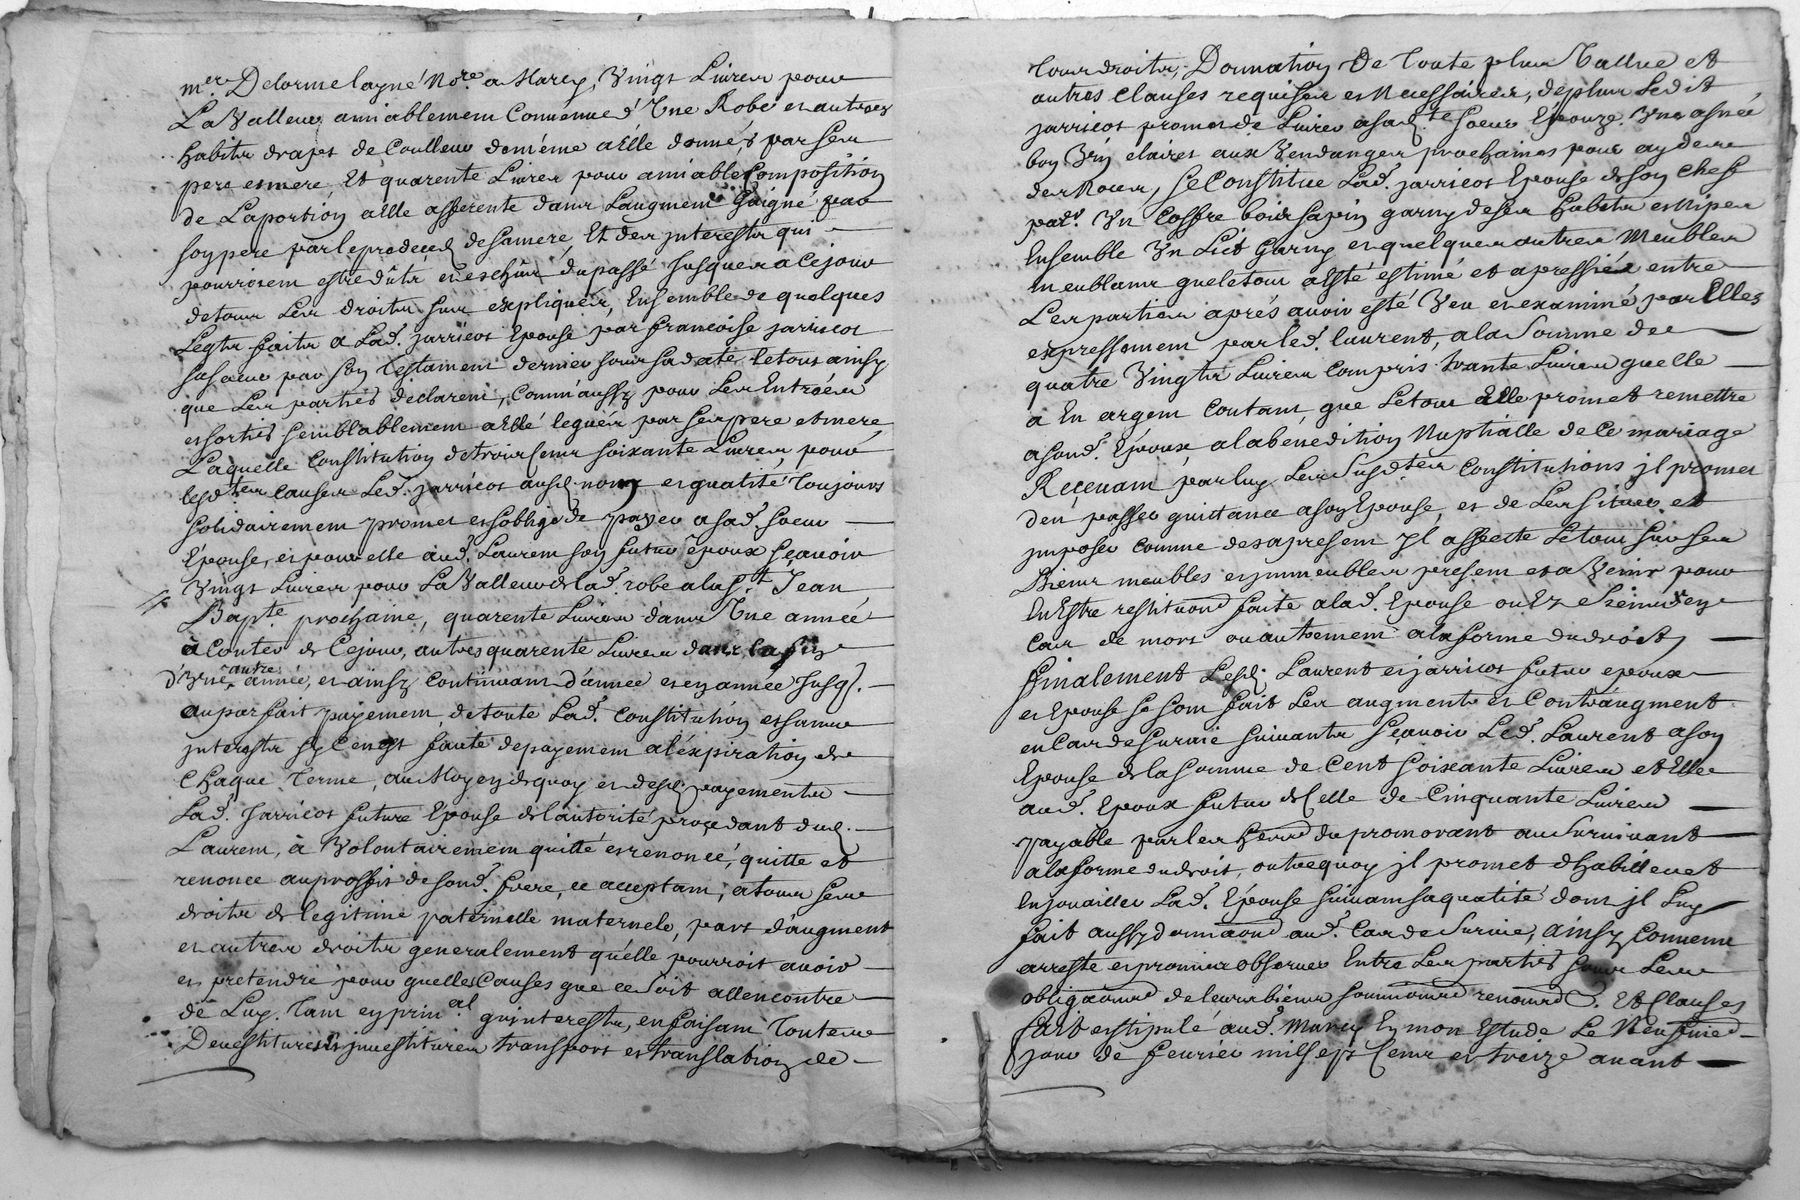 m.re Delorme layné No.re a Marcy, Vingt Livres pour
La Valleur amiablement Convenue d'Une Robe et autres
habits drapt de Coulleur donnés a Elle par ses
pere et mere, Et quarente Livres pour amiable Composition
de La portion a elle afferente dans L'augment Gaigné par
son pere par le predeced de sa mere Et des jnterests qui
pourroient estre dûts et eschus du passé Jusques a Ce jour
de tous Les droits sus expliqués, Ensemble de quelques
Legts faits a Lad. jarricot Epouse par francoise jarricot
sa soeur par son testament dernier sous sa date, le tout ainsy
que Les parties déclarent, Comm'aussy pour Les Entrées
et sorties semblablement a Elle legués par ses pere et mere
Laquelle Constitution de trois Cent soixante Livres pour
lesd.tes Causes Led. jarricot ausd. noms et qualité Toujours
solidairement promet et s'oblige de payer a sad. soeur
Epouse, et pour elle aud. Laurent son futur Epoux sçavoir
Vingt Livres pour La Valleur de lad. robe a la S.t Jean
Bap.te prochaine, quarente Livres dans Une année
à Conter de Ce jour, autres quarente Livres dans la fin
d'Une autre année, et ainsy Continuant d'année en année Jusq.
au parfait payement de toute Lad. Constitution et sans
jnterests sy Ce n'est faute de payement a l'expiration de
Chaque Terme, au Moyen de quoy et desd. payements
Lad. Jarricot future Epouse de l'autorité procedant dud.
Laurent, à Volontairement quitté et renoncé, quitte et
renonce au proffit de sond. frere, ce acceptant, a tous ses
droits de legitime paternelle maternele, part d'augment
et autres droits generalement qu'elle pourroit avoir
et pretendre pour quelles Causes que ce soit allencontre
de Luy. Tant en prin.al qu'interests, en faisant Toutes
Devestitures et jnvestitures transport et translation de
tous droits, Donnation De Toute plus Vallue et
autres Clauses requises et Necessaires, de plus Ledit
jarricot promet de Livrer a sad.te soeur Epouze Une asnée
bon Vin clairet aux Vendanges prochaines pour ayder
des Noces, se Constitue Lad. jarricot Epouse de son Chef
par.r Un Coffre bois sapin garny de ses habits et Nipes
Ensemble Un Lict Garny et quelques autres Meubles
meublans que le tout a Esté estimé et apressié entre
Les parties aprés avoir esté Veu et examiné par Elles
expressement par led. laurent, a la Somme de
quatre Vingts Livres Compris trante Livres qu'elle
a En argent Contant que Le tout Elle promet remettre
a sond. Epoux a la benedition Nuptialle de Ce mariage
Recevant par luy Les Susd.tes Constitutions jl promet
d'en passer quittance a son Epouse, et de Les situer et
jmposer comme des a present jl affecte Le tout sur ses
Biens meubles et jmmeubles present et a Venir pour
En Estre restitu.on faite a lad. Epouse ou Ez siens en
Cas de mort ou autrement a la forme du droit
finalement Lesd. Laurent et jarricot futur epoux
et Epouse se sont fait Les augments et Contraugment
en Cas de survie suivants sçavoir Led. Laurent a son
Epouse de la somme de Cent soixante Livres et Elle
aud. Epoux futur de Celle de Cinquante Livres
payable par les hers du premorant au Survivant
a la forme du droit, outre quoy jl promet d'habiller et
Enjouailler Lad. Epouse suivant sa qualité dont jl Luy
fait aussy donn.aon aud. Cas de Survie, ainsy Convenu
arresté et promis observer Entre Les parties sous Leurs
obliga.ons de leurs biens soumi.ons renon.ons. Et Clauses
fait et stipulé aud. Marcy En mon Estude Le Neufvie.
jour de fevrier mil sept Cent et treize avant